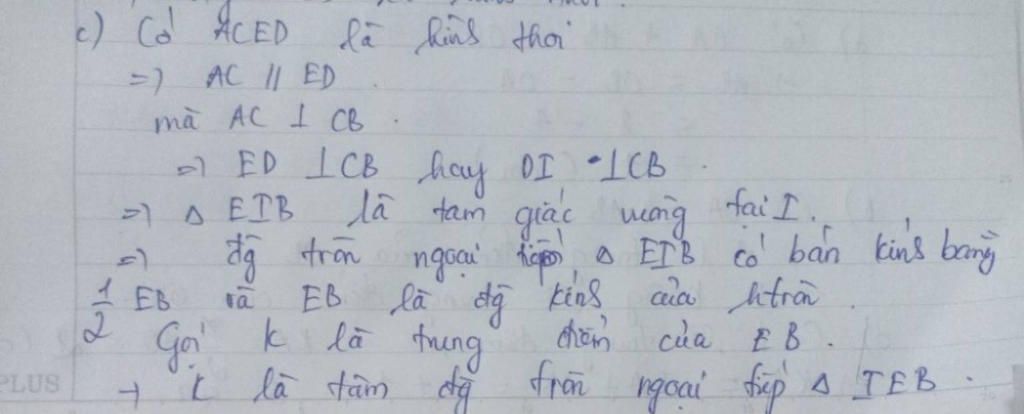 c) Có ACED là hình thoi
=> AC // ED.
mà AC ⊥ CB.
=> ED ⊥ CB hay DI ⊥ CB.
=> Δ EIB là tam giác vuông tại I.
=> đg tròn ngoại tiếp Δ EIB có bán kính bằng
1/2 EB và EB là đg kính của htròn.
Gọi K là trung điểm của EB.
→ K là tâm đg tròn ngoại tiếp Δ IEB.
PLUS